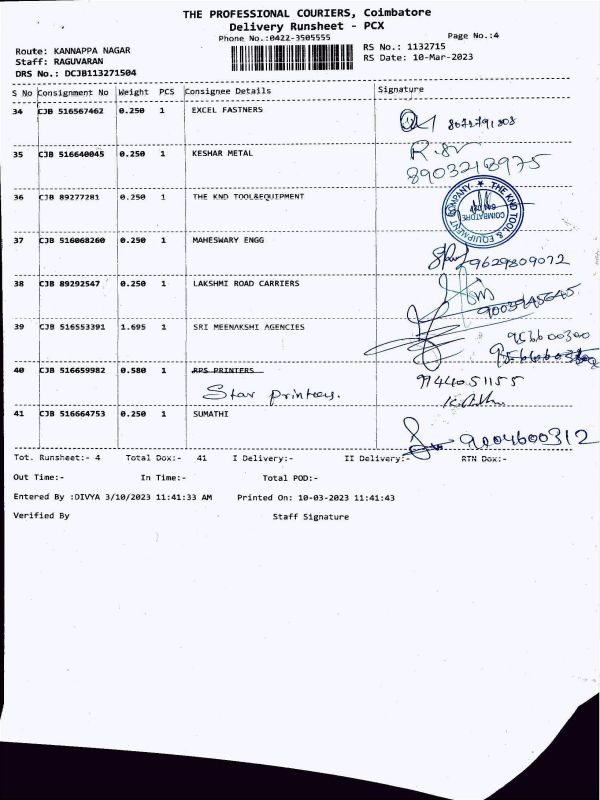 THE PROFESSIONAL COURIERS, Coimbatore
Delivery Runsheet - PCX
Phone No.:0422-3505555
Page No.:4
Route: KANNAPPA NAGAR
RS No.: 1132715
Staff: RAGUVARAN
RS Date: 10-Mar-2023
DRS No.: DCJB113271504
S No Consignment No Weight PCS Consignee Details Signature
34 CJB 516567462 0.250 1 EXCEL FASTNERS
35 CJB 516640045 0.250 1 KESHAR METAL
8903218975
36 CJB 89277281 0.250 1 THE KND TOOL&EQUIPMENT
THE KND TOOL & EQUIPMENT COMPANY
COIMBATORE
37 CJB 516068260 0.250 1 MAHESWARY ENGG
9629809072
38 CJB 89292547 0.250 1 LAKSHMI ROAD CARRIERS
39 CJB 516553391 1.695 1 SRI MEENAKSHI AGENCIES
40 CJB 516659982 0.580 1 RPS PRINTERS
Star printers.
9944051155
41 CJB 516664753 0.250 1 SUMATHI
9004600312
Tot. Runsheet:- 4 Total Dox:- 41 I Delivery:- II Delivery:- RTN Dox:-
Out Time:- In Time:- Total POD:-
Entered By :DIVYA 3/10/2023 11:41:33 AM Printed On: 10-03-2023 11:41:43
Verified By Staff Signature